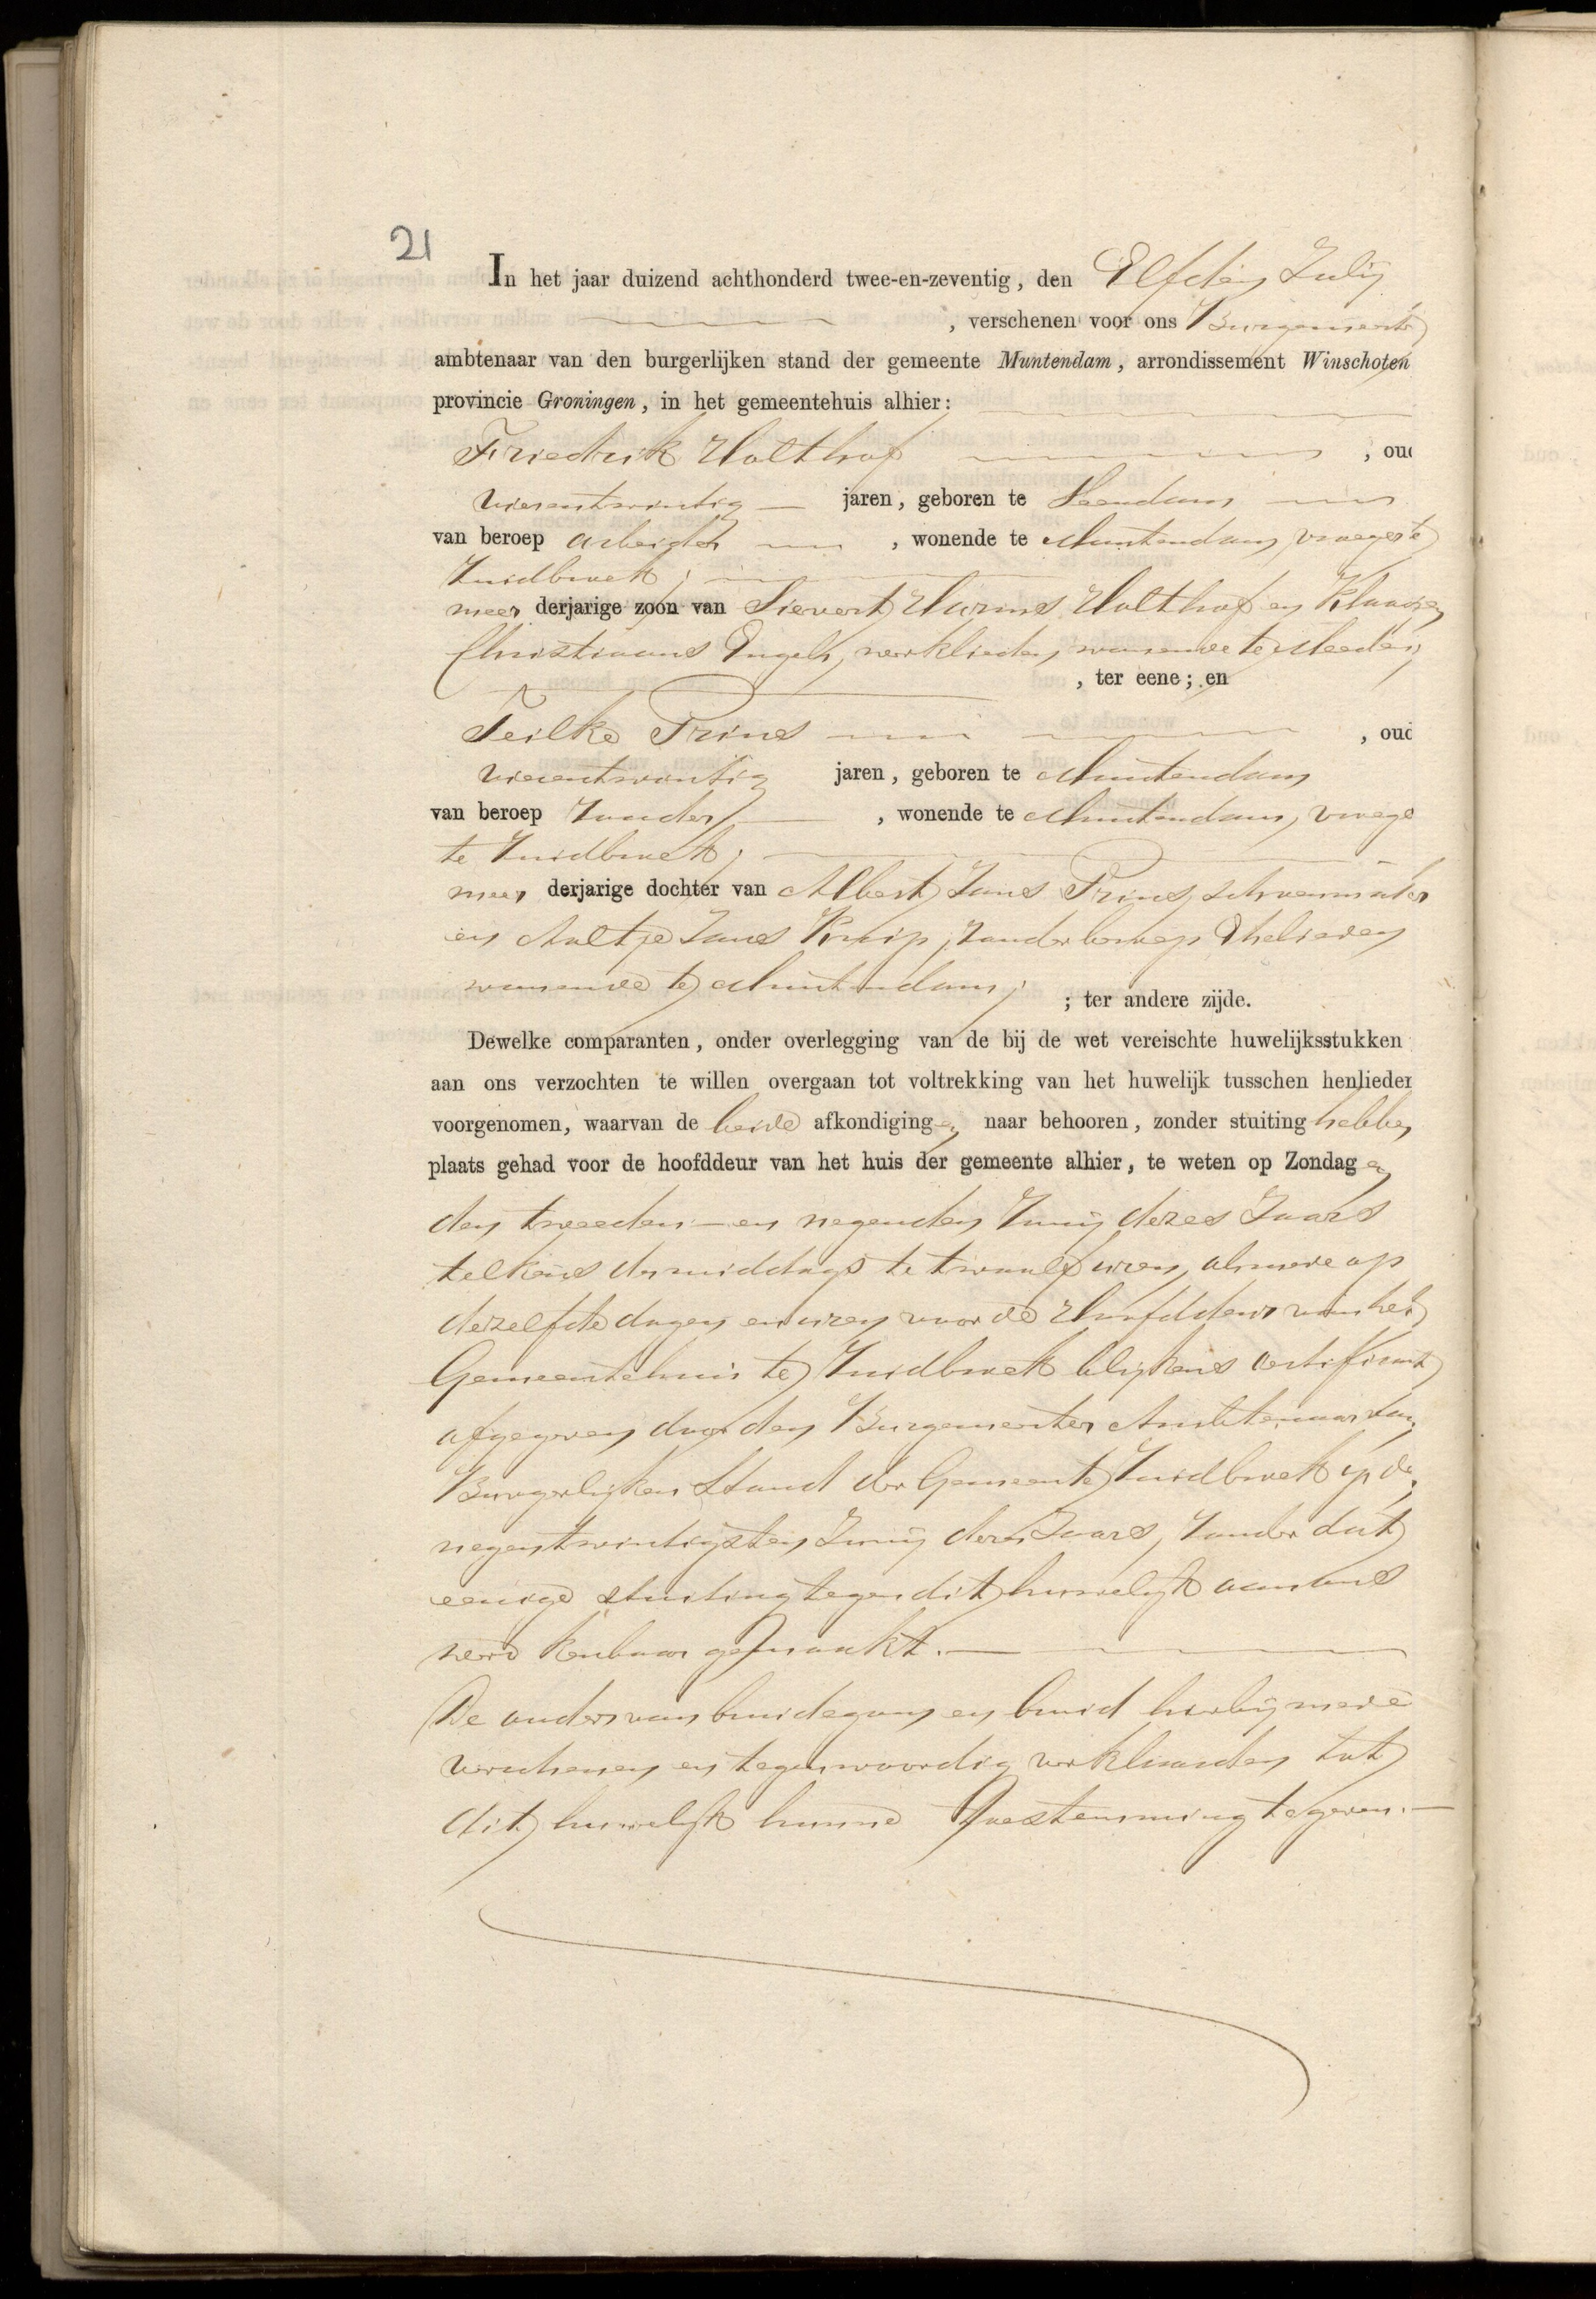 21
In het jaar duizend achthonderd twee-en-zeventig, den Elfden Julij
, verschenen voor ons Burgemeester
ambtenaar van den burgerlijken stand der gemeente Muntendam, arrondissement Winschoten
provincie Groningen, in het gemeentehuis alhier:
Friedrik Holthof , oud
vierentwintig jaren, geboren te Veendam
van beroep arbeider , wonende te Muntendam, vroeger te
Zuidbroek;
meer derjarige zoon van Sievert Harms Holthof en Klaassien
Christiaans Engels, werklieden, wonende te Meeden;
, ter eene; en
Feilke Prins , oud
vierentwintig jaren, geboren te Muntendam
van beroep Zonder , wonende te Muntendam, vroeger
te Zuidbroek;
meer derjarige dochter van Albert Jans Prins, schoenmaker
en Aaltje Jans Kruip, zonder beroep, Ehelieden
wonende te Muntendam;
; ter andere zijde.
Dewelke comparanten, onder overlegging van de bij de wet vereischte huwelijksstukken
aan ons verzochten te willen overgaan tot voltrekking van het huwelijk tusschen henlieden
voorgenomen, waarvan de beide afkondigingen naar behooren, zonder stuiting hebben
plaats gehad voor de hoofddeur van het huis der gemeente alhier, te weten op Zondagen
den tweeden en negenden Junij dezes Jaars
telkens des middags te twaalf uren, alsmede op
dezelfde dagen en uren voor de Hoofddeur van het
Gemeentehuis te Zuidbroek blijkens certificaat
afgegeven door den Burgemeester Ambtenaar van
Burgerlijken Stand der Gemeente Zuidbroek op de
negentwintigsten Junij dezes Jaars, zonder dat
eenige stuiting tegen dit huwelijk aan ons
werd kenbaar gemaakt.
De ouders van bruidegom en bruid hierbij mede
verschenen en tegenwoordig verklaarden tot
dit huwelijk hunne Toestemming te geven.